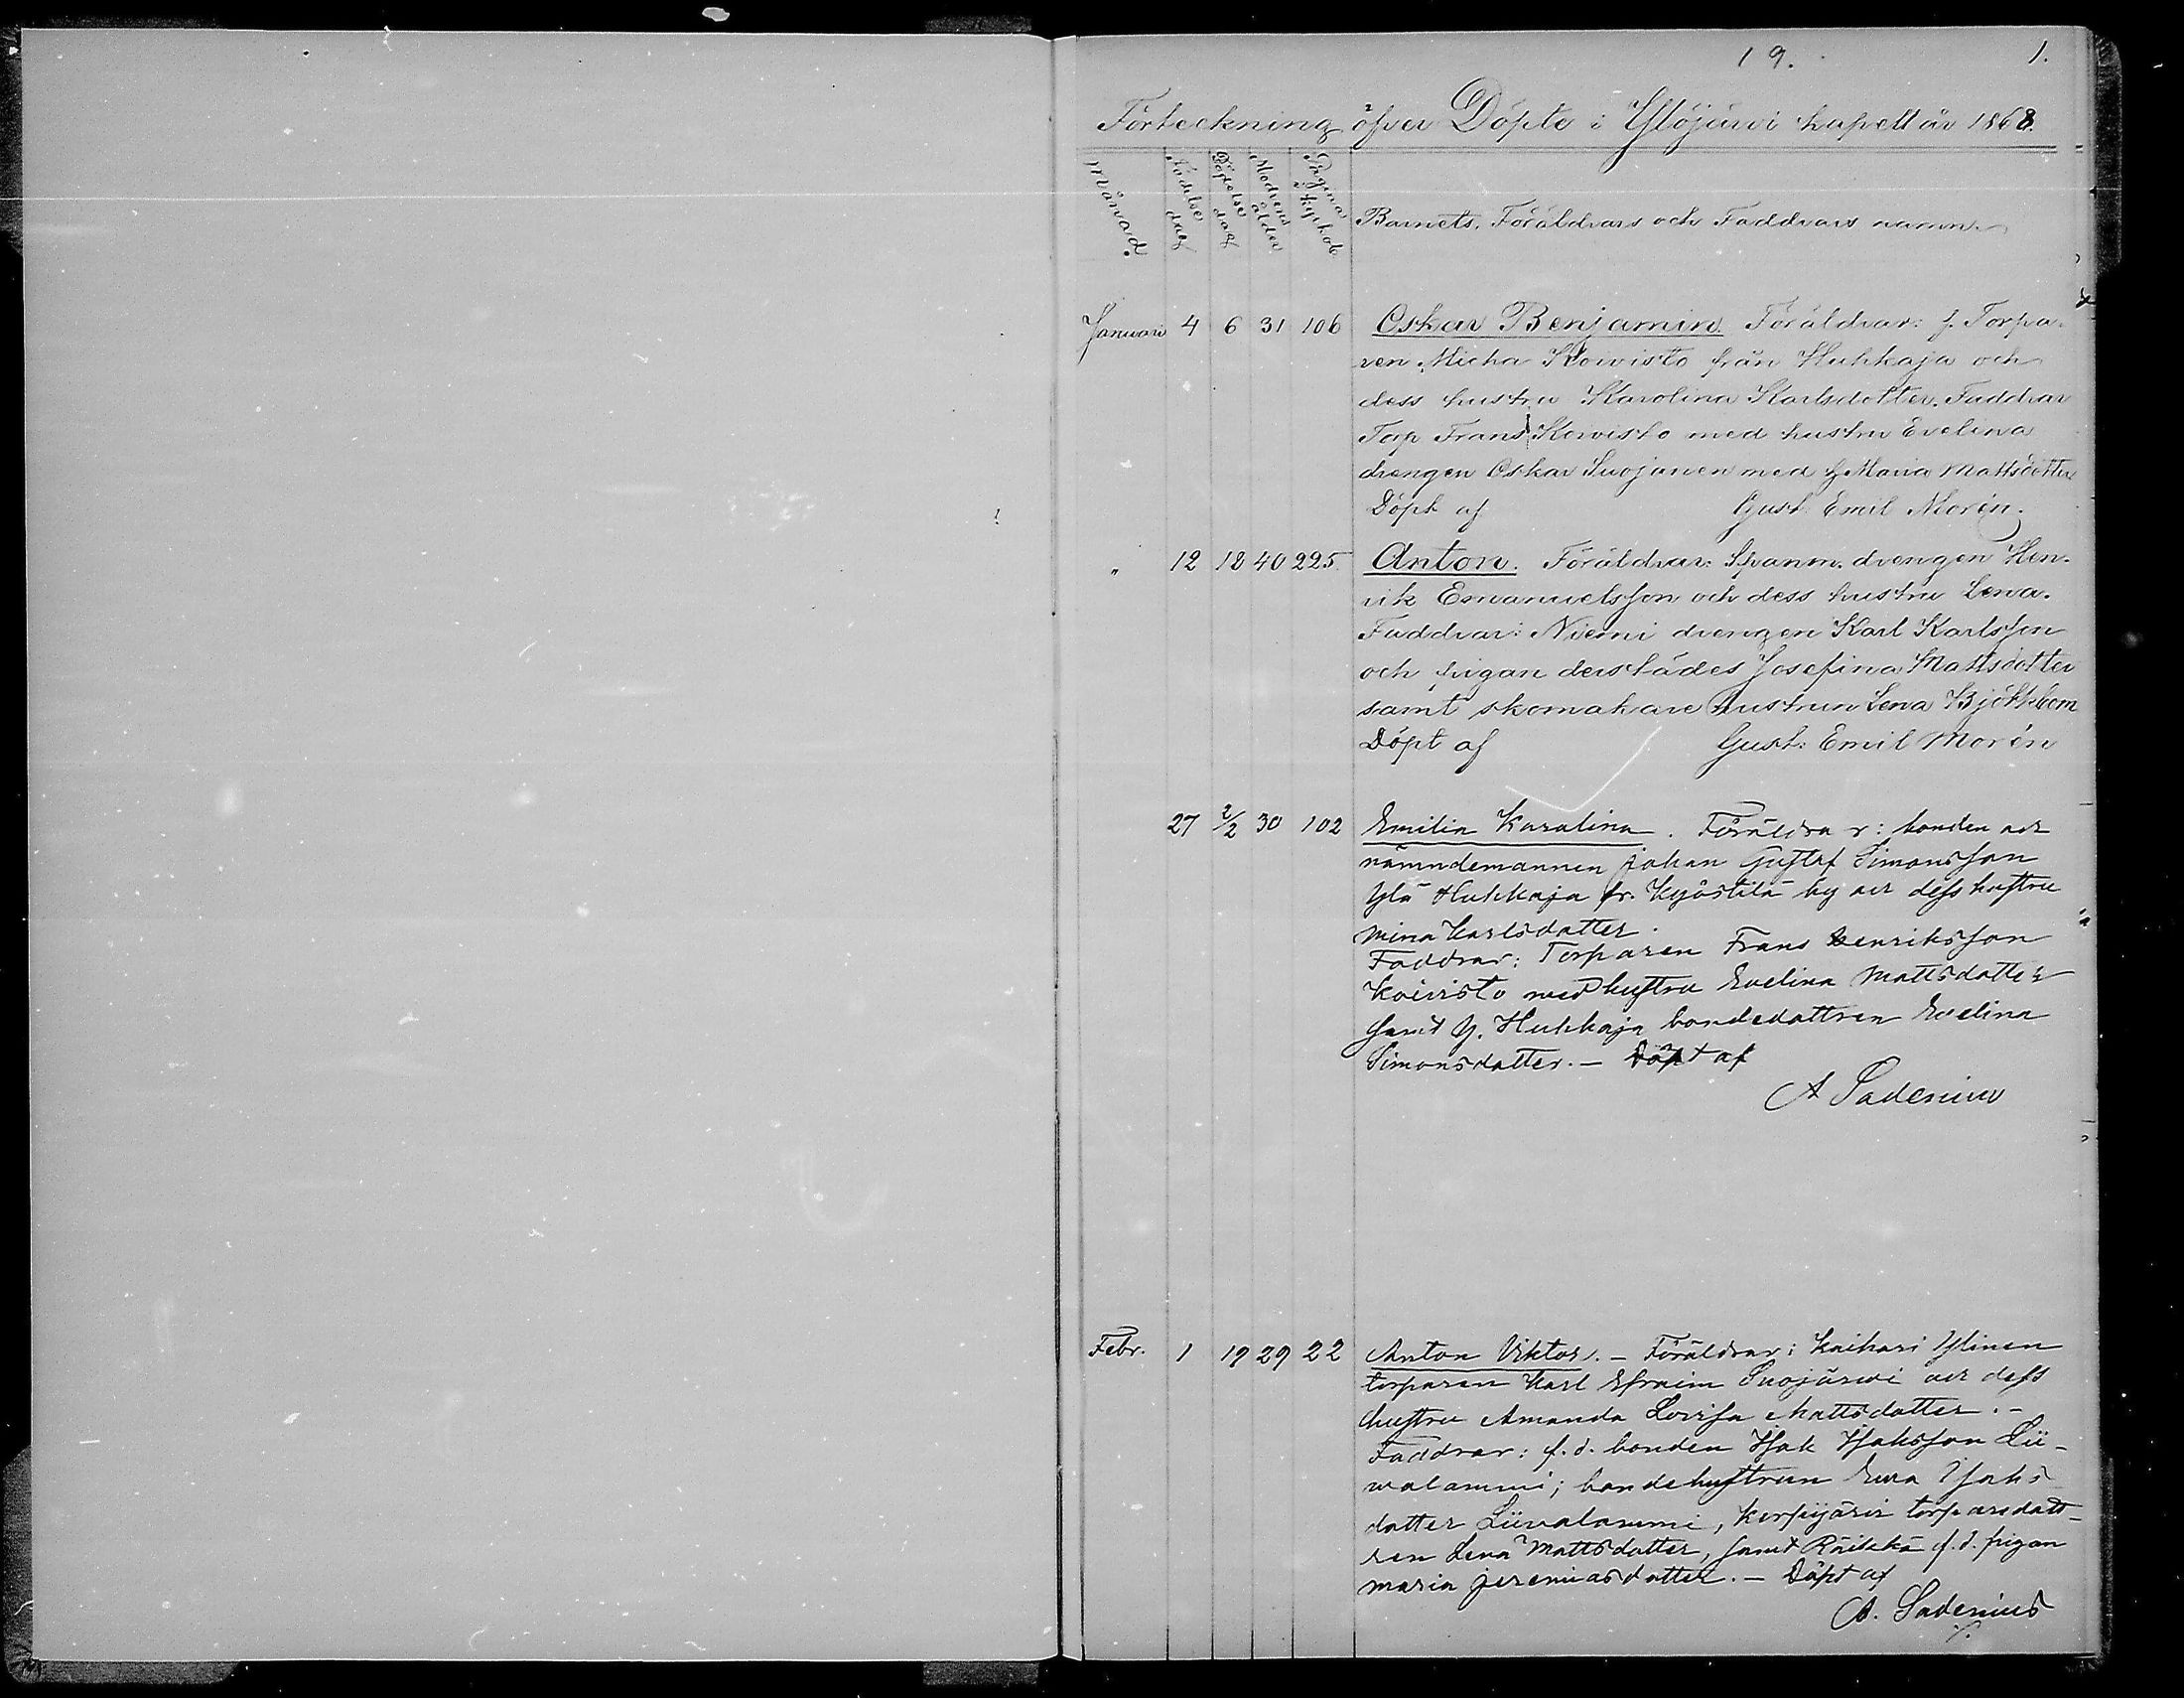 19. 1.
Förteckning öfver Döpte i Ylöjärvi kapell år 1868.
Månad. Födelse dag Döpelse dag Modrens ålder Pagina i kyrkob. Barnets, Föräldrars och Faddrars namn
Januari 4 6 31 106 Oskar Benjamin Föräldrar: f. Torpa-
ren Micha Koivisto från Huhkaja och
dess hustru Karolina Karlsdotter. Faddrar
Torp Frans Koivisto med hustru Evelina
drengen Oskar Suojanen med h Maria Mattsdotter
Döpt af Gust. Emil Morén.
" 12 18 40 225. Anton. Föräldrar: Spanm. drengen Hen-
rik Emanuelsson och dess hustru Lena.
Faddrar: Niemi drengen Karl Karlsson
och pigan derstädes Josefina Mattsdotter
samt skomakare hustrun Lena Björkbom
Döpt af Gust. Emil Morén
27 2/2 30 102 Emilia Karolina. Föräldrar: bonden och
nämndemannen Johan Gustaf Simonsson
Ylä Huhkaja fr. Kyöstilä by och dess hustru
Mina Karlsdotter.
Faddrar: Torparen Frans Henriksson
Koivisto med hustru Evelina Mattsdotter
samt Y. Huhkaja bondedottren Evelina
Simonsdotter. — Döpt af
A Sadenius
Febr. 1 19 29 22 Anton Viktor. — Föräldrar: Kaihari Ylinen
torparen Karl Efraim Suojärvi och dess
hustru Amanda Lovisa Mattsdotter. —
Faddrar: f.d. bonden Isak Isaksson Lii-
walammi; bondehustrun Eva Isaks
dotter Liivalammi, torparedott-
ren Lena Mattsdotter, samt Räikkä f.d. pigan
Maria Jeremiasdotter. — Döpt af
A. Sadenius